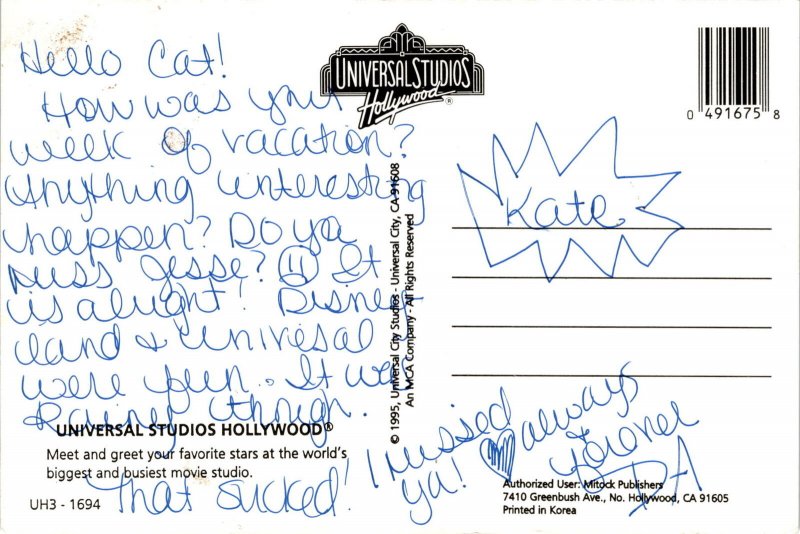 Hello Cat!
How was your
week of vacation?
Anything interesting
happen? Do ya
miss Jesse? It
is alright! Disney-
land & Univiesal
were fun. It was
Rainy though.
That sucked! I missed
ya! always
forever
UNIVERSAL STUDIOS
Hollywood®
0 491675 8
Kate
© 1995, Universal City Studios - Universal City, CA 91608
An MCA Company - All Rights Reserved
UNIVERSAL STUDIOS HOLLYWOOD®
Meet and greet your favorite stars at the world's
biggest and busiest movie studio.
UH3 - 1694
Authorized User: Mitock Publishers
7410 Greenbush Ave., No. Hollywood, CA 91605
Printed in Korea